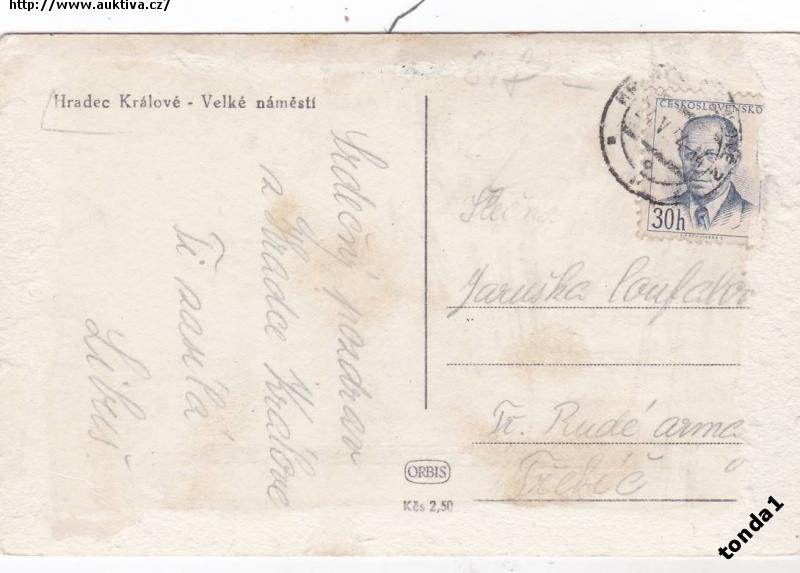 http://www.auktiva.cz/
Hradec Králové - Velké náměstí
Srdečný pozdrav
z Hradce Králové
Ti zasílá
Libuš.
ČESKOSLOVENSKO
30h
Slečna
Jaruška
Tř. Rudé armá
Třebíč
ORBIS
Kčs 2,50
tonda1